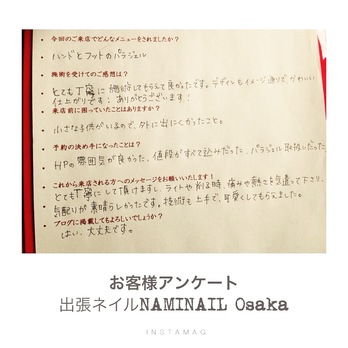 今回のご来店でどんなメニューをされましたか?
ハンドとフットのパラジェル
施術を受けてのご感想は?
とても丁寧に施術してもらえて良かったです。デザインもイメージ通りで、かわいい
仕上がりです！ありがとうございます！
来店前に困っていたことはありますか?
小さな子供がいるので、外に出にくかったこと。
予約の決め手になったことは?
HPの雰囲気が良かった、値段がすべて込みだった、パラジェル取扱いだった
これから来店される方へのメッセージをお願いいたします!
とても丁寧にして頂けますし、ライトや削る時、痛みや熱さを気遣って下さり、
気配りが素晴らしかったです。技術も上手で、可愛くしてもらえました。
ブログに掲載してもよろしいでしょうか?
はい、大丈夫です。
お客様アンケート
出張ネイルNAMINAIL Osaka
INSTAMAG